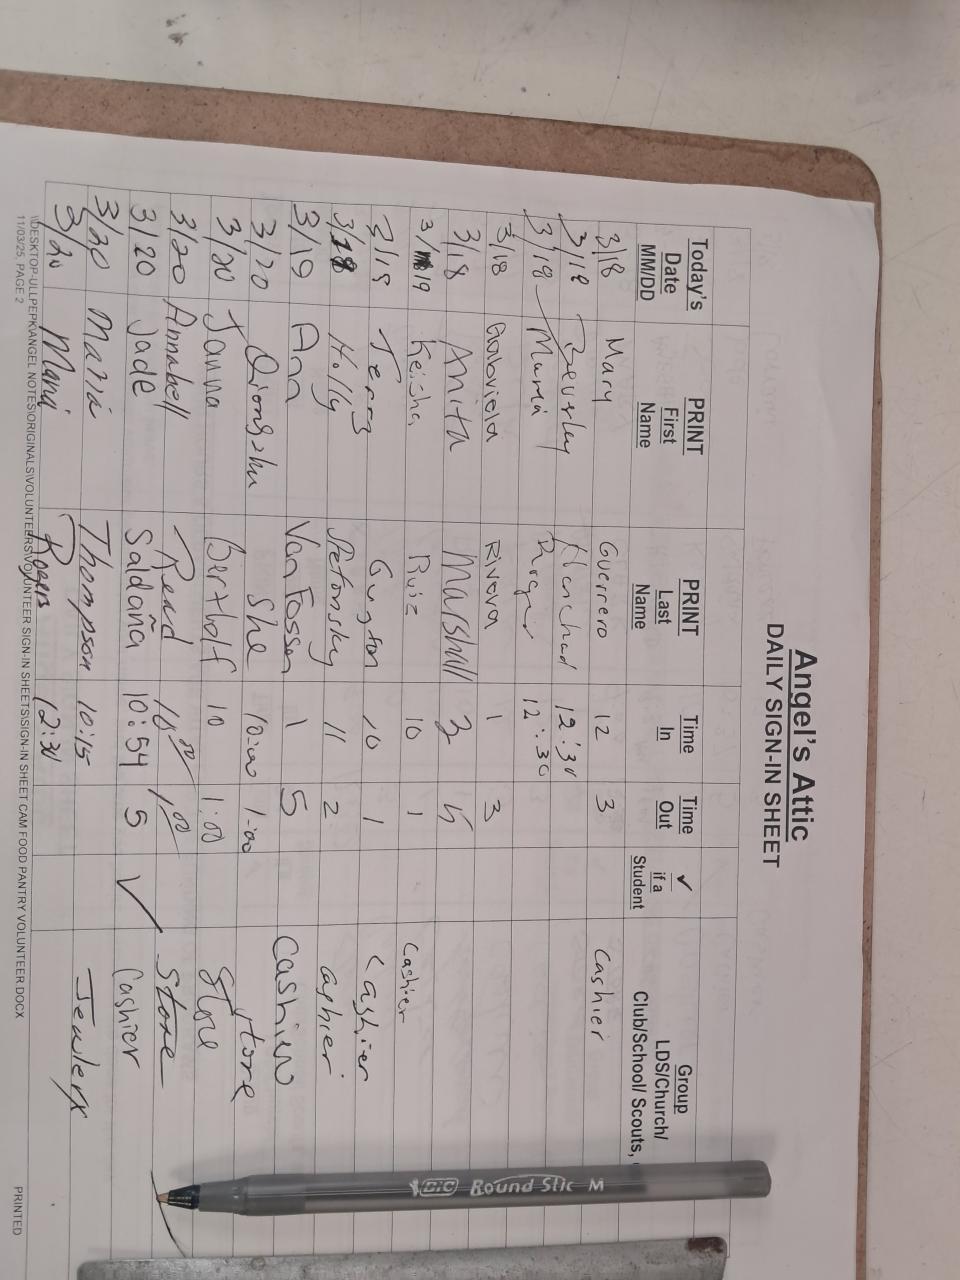 Angel's Attic
DAILY SIGN-IN SHEET
Today's Date MM/DD PRINT First Name PRINT Last Name Time In Time Out ✓ if a Student Group LDS/Church/ Club/School/ Scouts,
3/18 Mary Guerrero 12 3 Cashier
3/18 Beverly 12:30
3/18 Maria 12:30
3/18 Rivera 1 3
3/18 Anita Marshall 3 5
3/19 Keisha Ruiz 10 1 Cashier
3/19 10 1 Cashier
Holly Petonsky 11 2 Cashier
3/19 Ann Van Fossen 1 5 Cashier
3/20 Qiongzhu She 10:00 1:00 store
3/20 Janna Bertolf 10 1:00 Store
3/20 Annabell Read 10:00 1:00 Store
3/20 Jade Saldaña 10:54 5 ✓ Cashier
3/20 Maria Thompson 10:15 Jewlery
3/20 Rogers 12:30
\\DESKTOP-ULLPEPK\ANGEL NOTES\ORIGINALS\VOLUNTEERS\VOLUNTEER SIGN-IN SHEETS\SIGN-IN SHEET CAM FOOD PANTRY VOLUNTEER.DOCX PRINTED
11/03/25, PAGE 2
BIC Round Stic M